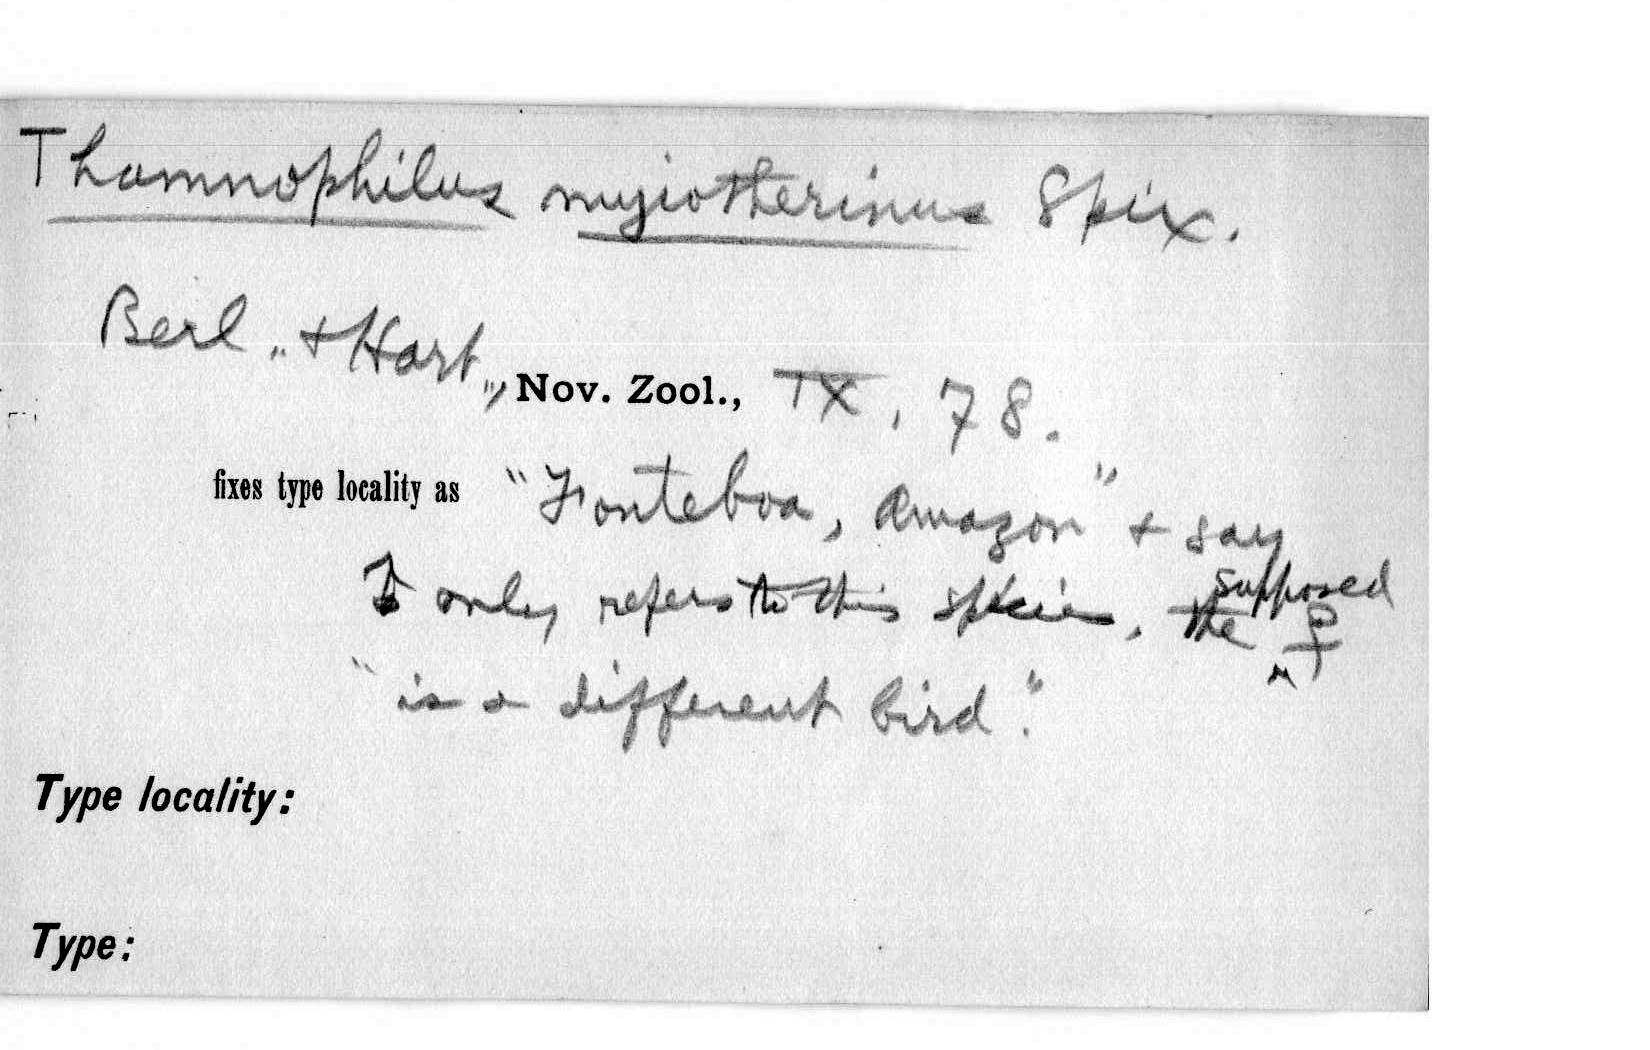 Thamnophilus myiotherinus Spix.
Berl. & Hart., Nov. Zool., IX, 78.
fixes type locality as "Fonteboa, Amazon" & say
♂ only refers to this species, the supposed ♀
"is a different bird."
Type locality:
Type: